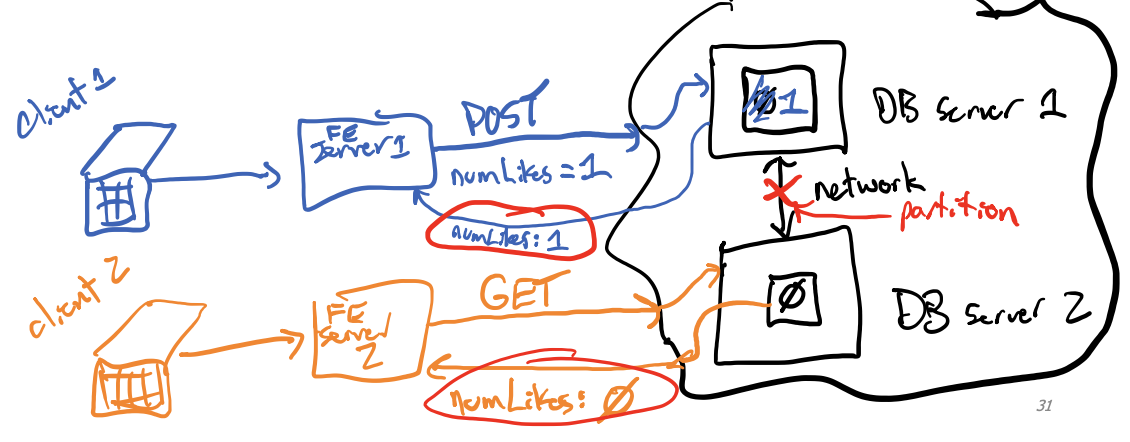 client 1
FE
server 1
POST
numLikes = 1
numLikes: 1
1
DB server 1
network
partition
client 2
FE
server
2
GET
numLikes: Ø
Ø
DB server 2
31